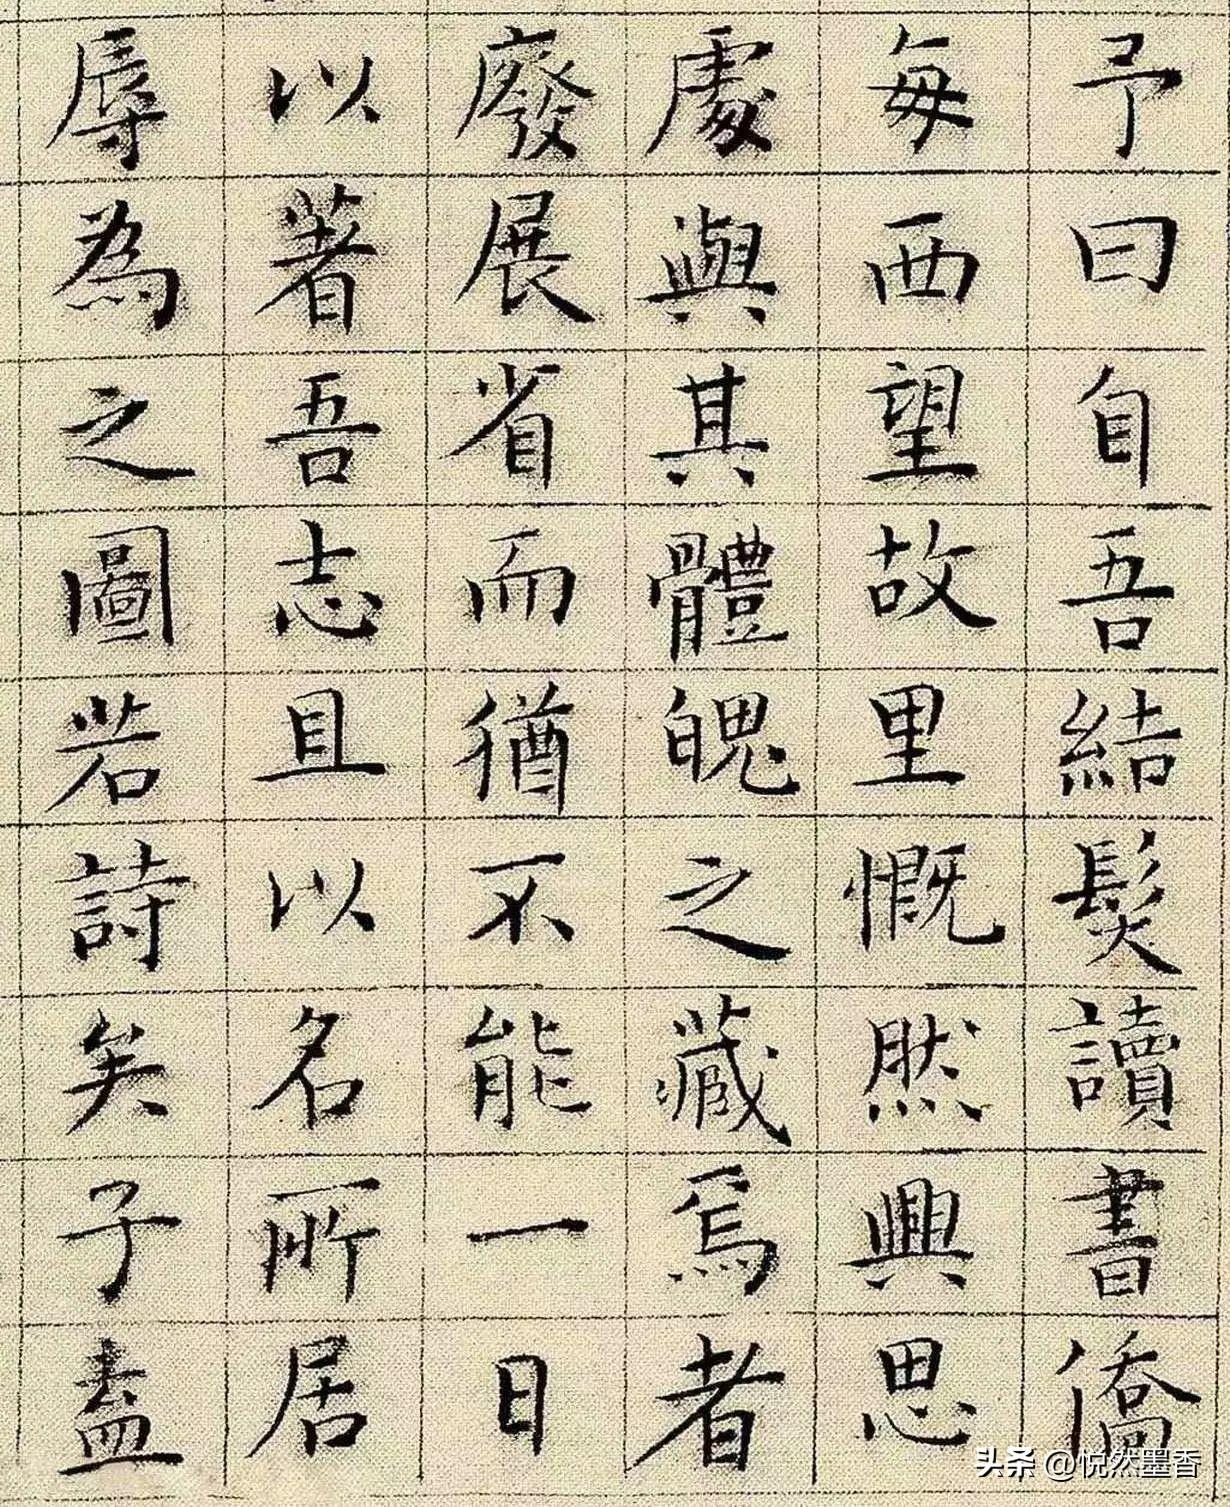 予曰自吾結髮讀書僑
每西望故里慨然興思
處與其體魄之藏焉者
廢展省而猶不能一日
以著吾志且以名所居
辱為之圖若詩矣子盍
头条 @悦然墨香